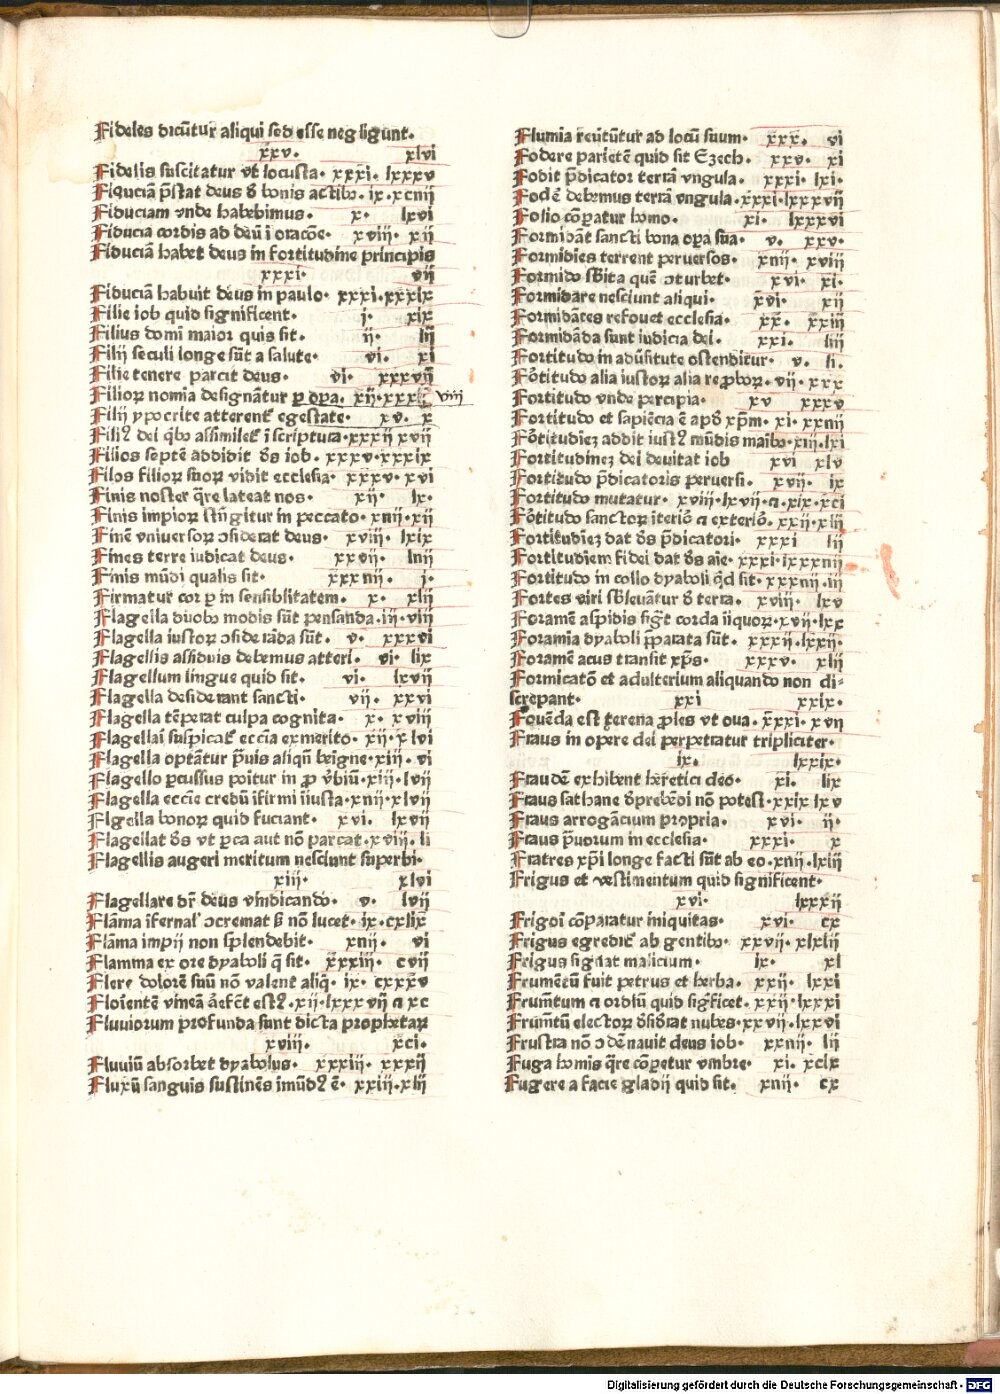 Fideles dicūtur aliqui sed esse negligunt.
xxv. xlvi
Fidelis suscitatur vt locusta. xxxi. lxxxv
Fiduciā p̄stat deus d̄ bonis actibꝯ. ix. xcnij
Fiduciam vnde habebimus. x. lxvi
Fiducia cordis ad deū ī oracōe. xviii. xij
Fiduciā habet deus in fortitudine principis
xxxi. vij
Fiduciā habuit deus in paulo. xxxi. xxxix
Filie iob quid significent. j. xix
Filius domī maior quis sit. ij. lij
Filij seculi longe sūt a salute. vi. xi
Filie tenere parcit deus. vi. xxxvij
Filioꝝ nomia designātur ꝑ oꝑa. xij. viij
Filij ypocrite atterent᷑ egestate. xv. x
Filiꝰ dei qb̄o assimilet᷑ ī scriptura. xxxij xvij
Filios septē addidit d̄s iob. xxxv. xxxix
Filos filioꝝ suoꝝ vidit ecclesia. xxxv. xvi
Finis noster q̄re lateat nos. xij. lx.
Finis impioꝝ stn̄gitur in peccato. xnij. xij
Finē vniuersoꝝ ↄsiderat deus. xviij. lxix
Fines terre iudicat deus. xxvij. lnij
Finis mūdi qualis sit. xxxnij. j.
Firmatur cor ꝑ in sensiblitatem. x. xlij
Flagella duobꝯ modis sūt pensanda. iij. vlij
Flagella iustoꝝ ↄsiderāda sūt. v. xxxvi
Flagellis assiduis debemus atteri. vi. lix
Flagellum lingue quid sit. vi. lxvij
Flagella desiderant sancti. vij. xxvi
Flagella tēperat culpa cognita. x. xviij
Flagellai suspicat᷑ eccīa ex merito. xij. xlvi
Flagella optātur p̄uis aliqn̄ beīgne. xiij. vi
Flagello ꝑcussus poitur in ꝓ vb̄iū. xiij. lvij
Flagella eccīe credūt īfirmi īiusta. xnij. xlvij
Flgella bonoꝝ quid fuciant. xvi. lxvij
Flagellat d̄s vt ꝑca aut nō parcat. xviij. li
Flagellis augeri meritum nesciunt superbi.
xiij. xlvi
Flagellare dr̄ deus vindicando. v. lvij
Flāma īfernal᷑ ↄcremat s̄ nō lucet. ix. cxlix
Flāma impij non splendebit. xnij. vi
Flamma ex ore dyaboli q̄ sit. xxxiij. cvij
Flere dolorē suū nō valent aliq̄. ix. cxxxv
Floientē vineā āefc̄t estꝰ. xij. lxxxvij a xc
Fluviorum profunda sunt dicta prophetaꝝ
xviij. xci.
Fluviū absorbet dyabolus. xxxiij. xxxij
Fluxū sanguis sustinēs imūdꝰ ē. xxiij. xlij
Flumia reūtūtur ad locū suum. xxx. vi
Fodere parietē quid sit Ezech. xxv. xi
Fodit p̄dicator terrā vngula. xxxi. lxi.
Fodē debemus terrā vngula. xxxi. lxxxvij
Folio cōꝑatur homo. xi. lxxxvi
Formidāt sancti bona oꝑa sua. v. xxv.
Formidies terrent peruersos. xnij. xviij
Formido sb̄ita quē ↄturbet. xvi. xi.
Formidare nesciunt aliqui. xvi. xij
Formidātes refouet ecclesia. xx. xxiij
Formidāda sunt iudicia dei. xxi. iij
Fortitudo in adūsitute ostenditur. v. li.
Fōtitudo alia iustoꝝ alia reꝓboꝝ. vij. xxx
Fortitudo vnde percipia. xv xxxv
Fortitudo et sapiēcia ē apd̄ xp̄m. xi. xxnij
Fōtitudieꝫ addit iustꝰ mūdis maibꝯ. xiij. lxi
Fortitudineꝫ dei deuitat iob xvi xlv
Fortitudo p̄dicatoris peruersi. xvij. ix
Fortitudo mutatur. xviij. lxvij. a. xix. xci
Fōtitudo sanctoꝝ īteriō a exteriō. xxij. xlij
Fortitudieꝫ dat d̄s p̄dicatori. xxxi lij
Fortitudiem fidei dat d̄s aīe. xxxi. lxxxnij
Fortitudo in collo dyaboli q̄d sit. xxxnij. ij
Fortes viri sb̄leuātur d̄ terra. xviij. lxv
Foramē aspidis sig᷑t corda iiquoꝝ. xvij. lxx
Foramia dyaboli ꝓparata sūt. xxxij. lxxij.
Foramē acus transit xp̄s. xxxv. xlij
Formicatō et adulterium aliquando non di-
screpant. xxi xxix.
Fouēda est terena ꝓles vt oua. xxxi. xvij
Fraus in opere dei perpetratur tripliciter.
ix. lxxix.
Fraudē exhibent heretici deo. xi. lix
Fraus sathane dp̄rebēdi nō potest. xxix lxv
Fraus arrogācium propria. xvi. ij.
Fraus p̄uorum in ecclesia. xxxi. x
Fratres xp̄i longe facti sūt ab eo. xnij. lxiij
Frigus et vestimentum quid significent.
xvi. lxxxij
Frigoi cōparatur iniquitas. xvi. cx
Frigus egredit᷑ ab gentibꝯ. xxvij. xlxlij
Frigus signat malicium. ix. xl
Frumētū fuit petrus et herba. xxij. lxxi
Frumtum a ordiū quid sigficet. xxij. lxxxi
Frumtū electoꝝ dsid̄rat nubes. xxvij. lxxvi
Frustra nō ↄdēnauit deus iob. xxnij. lij
Fuga homis q̄re cōpetur vmbre. xi. xclx
Fugere a facie gladij quid sit. xnij. cx
Digitalisierung gefördert durch die Deutsche Forschungsgemeinschaft - DFG